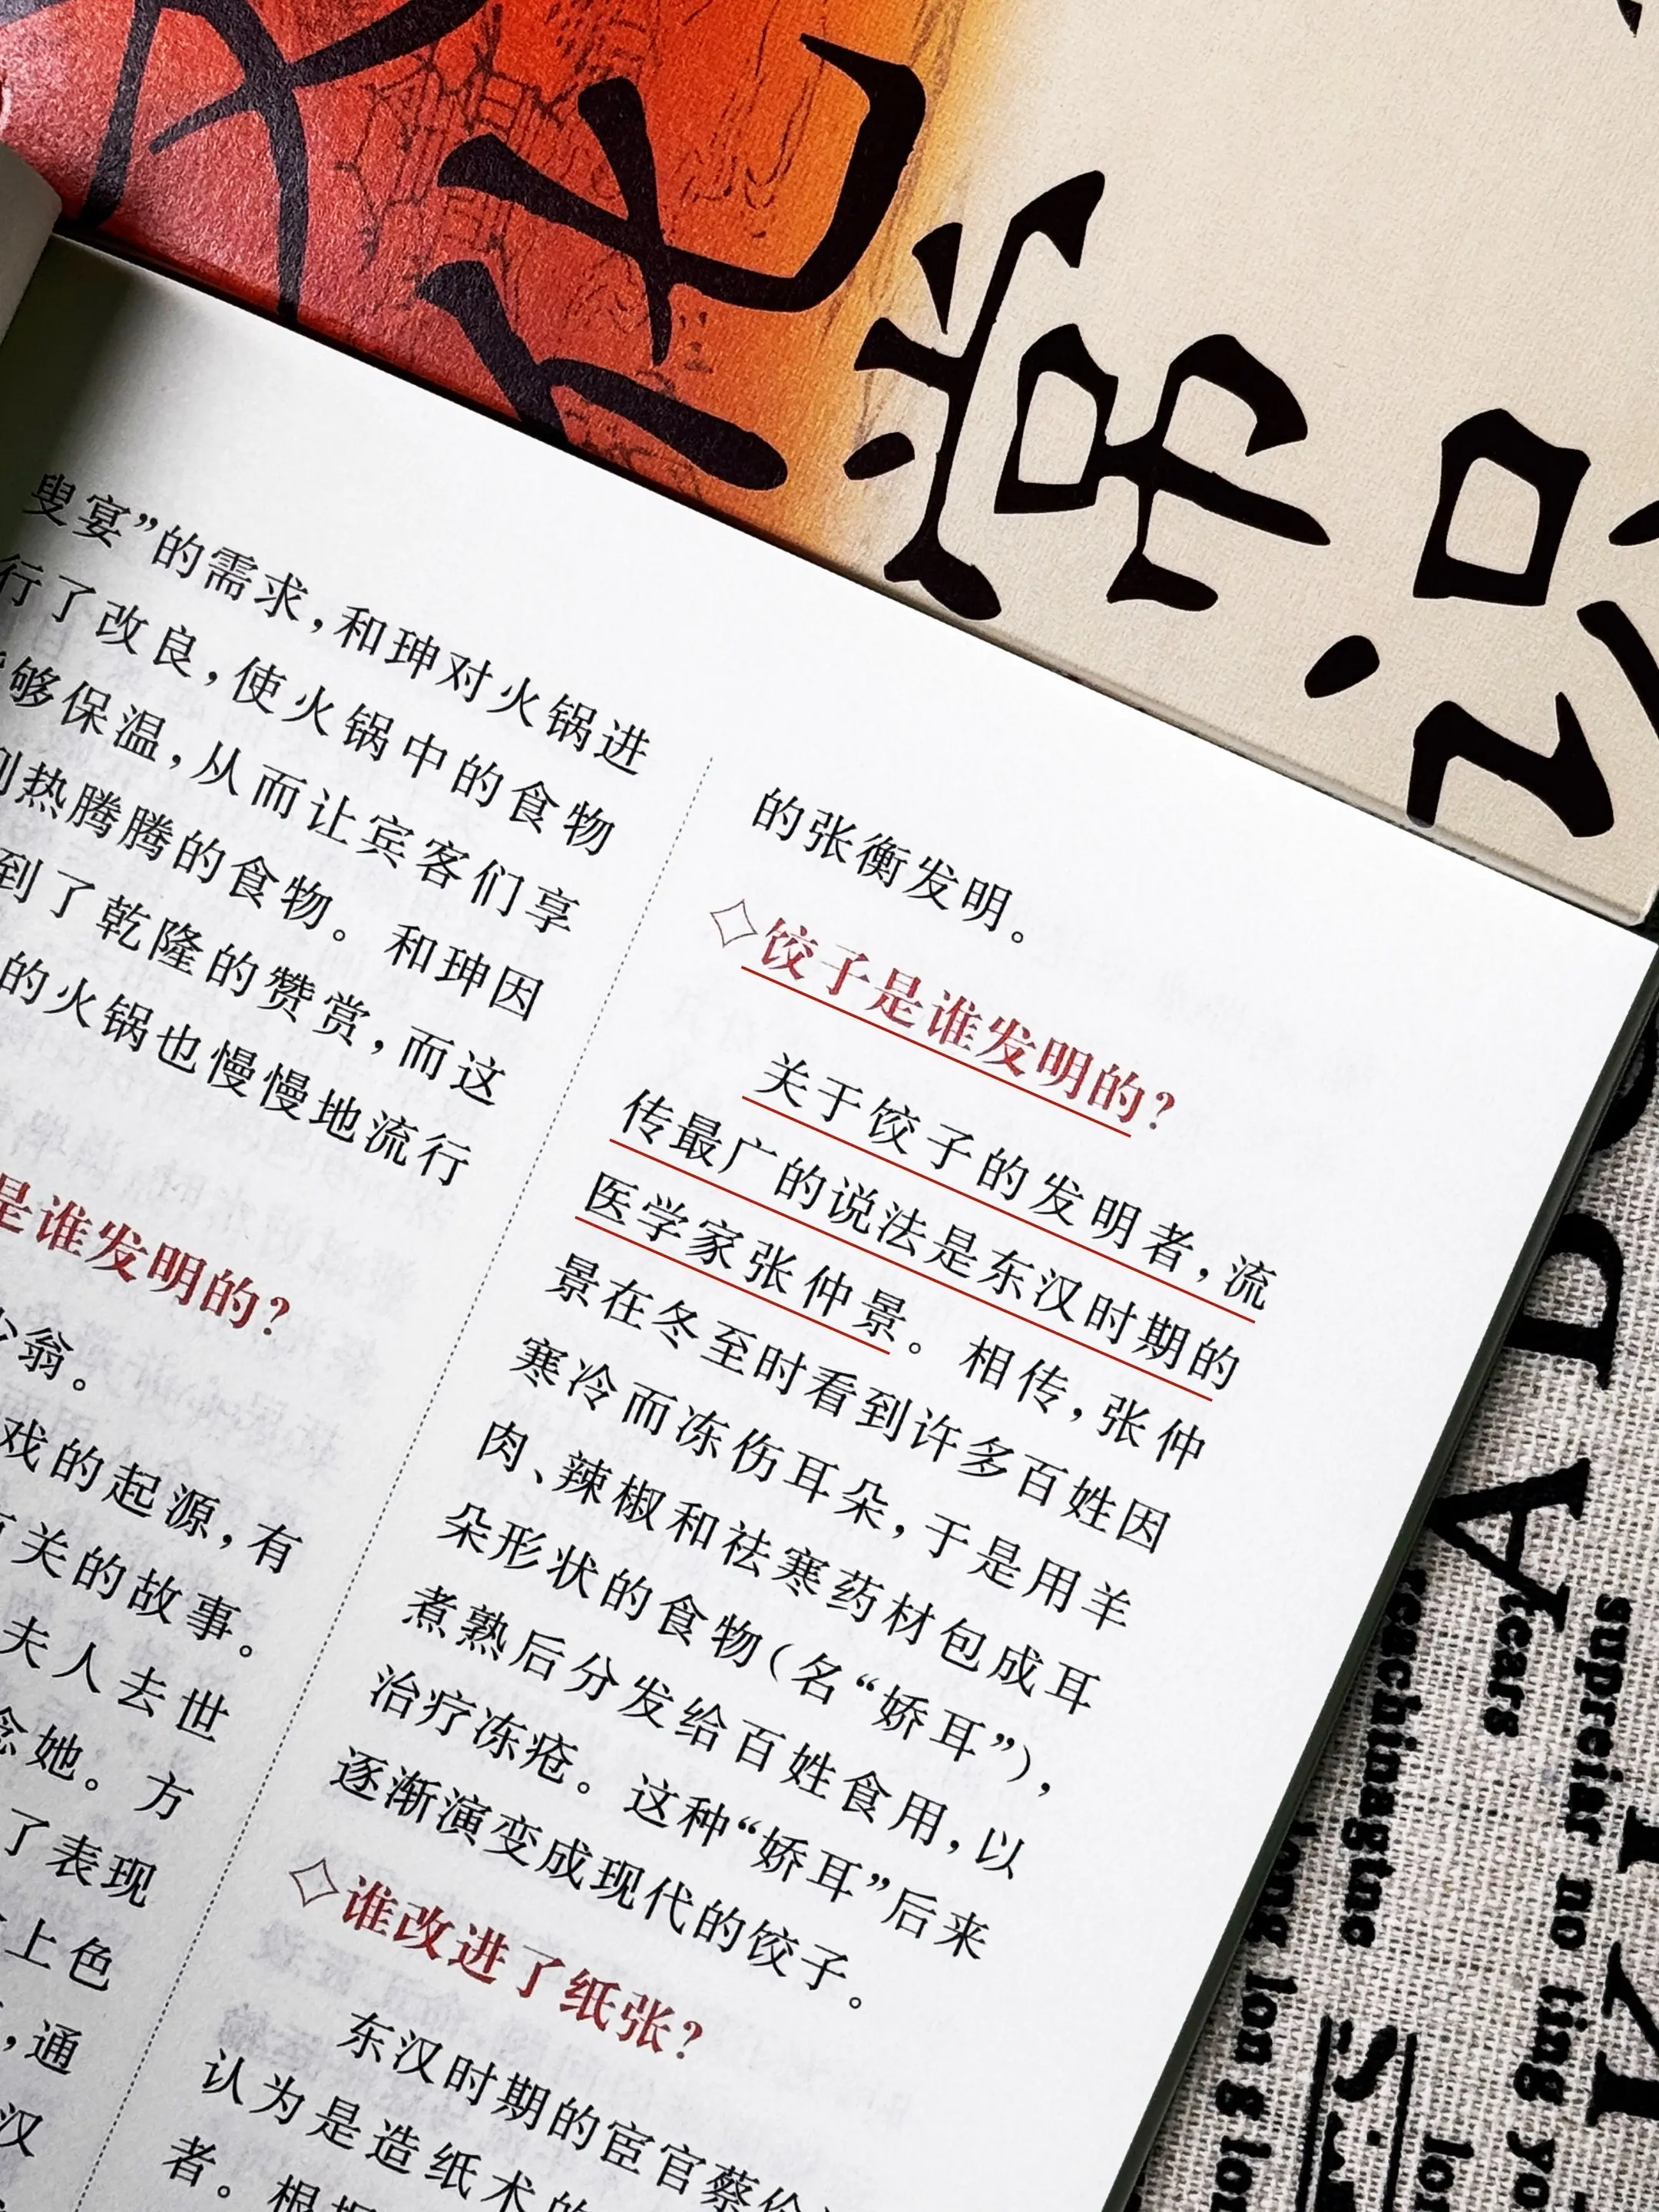 文化常识
叟宴”的需求，和珅对火锅进
行了改良，使火锅中的食物
够保温，从而让宾客们享
热腾腾的食物。和珅因
到了乾隆的赞赏，而这
的火锅也慢慢地流行
是谁发明的？
少翁。
戏的起源，有
关的故事。
夫人去世
念她。方
了表现
上色
，通
汉
的张衡发明。
◇饺子是谁发明的？
关于饺子的发明者，流
传最广的说法是东汉时期的
医学家张仲景。相传，张仲
景在冬至时看到许多百姓因
寒冷而冻伤耳朵，于是用羊
肉、辣椒和祛寒药材包成耳
朵形状的食物（名“娇耳”），
煮熟后分发给百姓食用，以
治疗冻疮。这种“娇耳”后来
逐渐演变成现代的饺子。
◇谁改进了纸张？
东汉时期的宦官蔡伦
认为是造纸术的
者。根据
supreiar no ting yo
Years
reachinagtne
long lon g lon